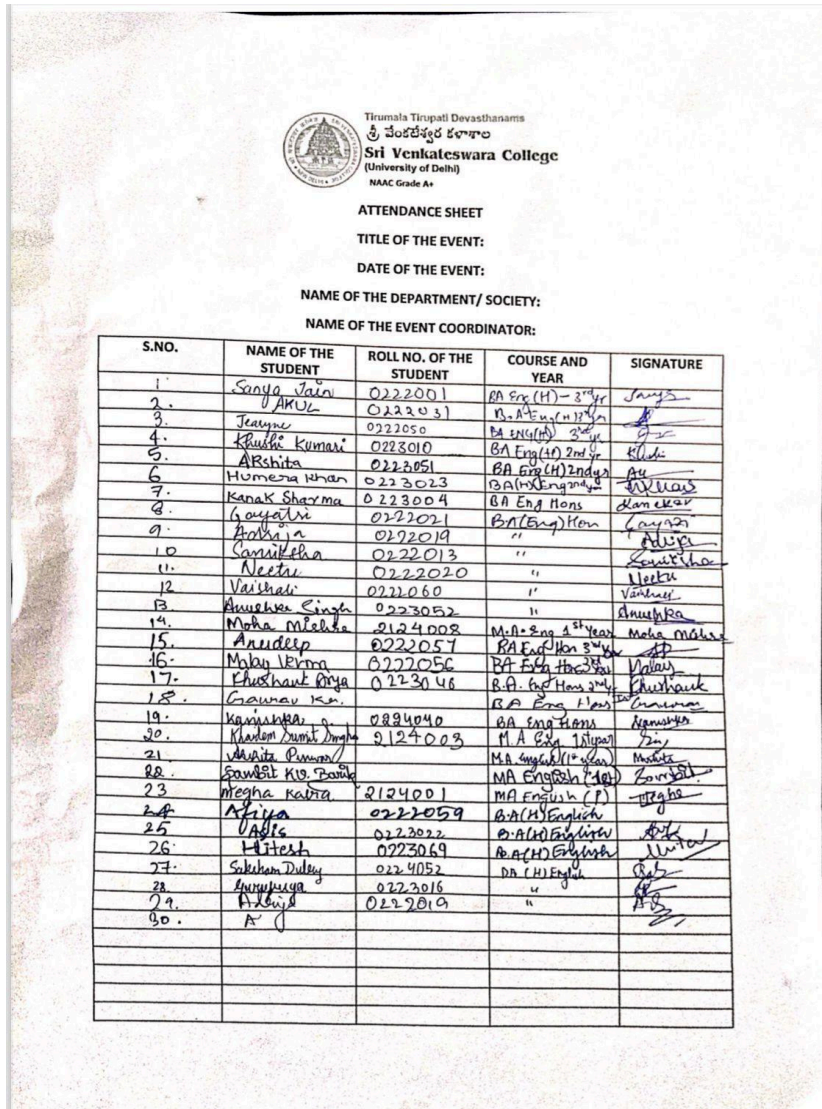 Tirumala Tirupati Devasthanams
శ్రీ వేంకటేశ్వర కళాశాల
Sri Venkateswara College
(University of Delhi)
NAAC Grade A+
ATTENDANCE SHEET
TITLE OF THE EVENT:
DATE OF THE EVENT:
NAME OF THE DEPARTMENT/ SOCIETY:
NAME OF THE EVENT COORDINATOR:
S.NO. NAME OF THE STUDENT ROLL NO. OF THE STUDENT COURSE AND YEAR SIGNATURE
1 Sanya Jain 0222001 BA Eng (H) - 3rd yr Sanya
2. AKUL 0222031 B.A Eng (H) 3rd yr
3. 0222050 BA ENG(H) 3rd yr
4. Khushi Kumari 0223010 BA Eng (H) 2nd yr Khushi
5. ARshita 0223051 BA Eng (H) 2nd yr
6 Humera Khan 0223023 BA(H) Eng 2nd yr
7. Kanak Sharma 0223004 BA Eng Hons
8. Gayatri 0222021 BA(Eng) Hon Gayatri
9. 0222019 "
10 0222013 "
11. Neetu 0222020 " Neetu
12 Vaishali 0222060 " Vaishali
13 Anushka Singh 0223052 " Anushka
14. Moha Mishra 2124008 M.A. Eng 1st year Moha Mishra
15. Anudeep 0222057 BA Eng Hon 3rd yr
16. Verma 0222056 BA Eng Hons 3rd
17. Khushant Arya 0223046 B.A. Eng Hons 2nd yr Khushant
18. Gaurav Kr. BA Eng Hons Ist Gaurav
19. Kanishka 0224040 BA Eng Hons Kanishka
20. Sumit Singha 2124003 M.A Eng 1st year
21 M.A. English (1st year)
22. Sambit Kr. Barik MA English (1st) Sambit
23 Megha Kalra 2124001 MA English (P) Megha
24 Afiya 0222059 B.A(H) English
25 0223022 B.A(H) English
26. Hitesh 0223069 B.A(H) English Hitesh
27. Saksham Dubey 0224052 BA (H) English
28. Gurupriya 0223016 "
29. 0222019 "
30. A